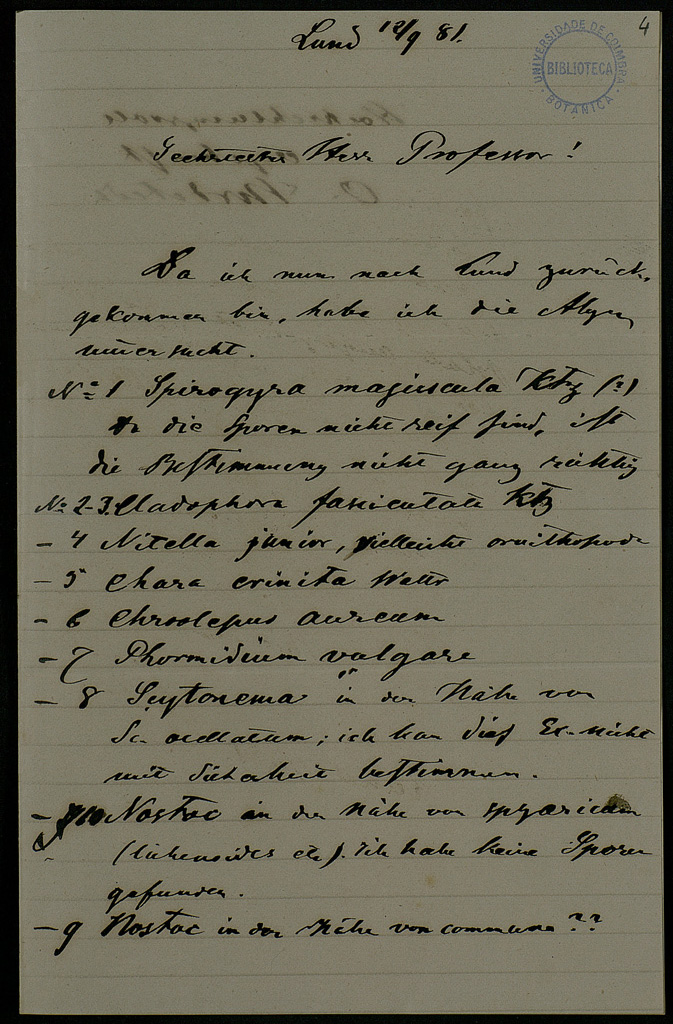 4
Lund 12/9 81.
UNIVERSIDADE DE COIMBRA
BIBLIOTECA
BOTANICA
Geehrtester Herr Professor!
Da ich nun nach Lund zurück-
gekommen bin, habe ich die Algen
untersucht.
No 1 Spirogyra majuscula Ktz (?)
die Sporen nicht reif sind, ist
die Bestimmung nicht ganz richtig
No 2-3. Cladophora Ktz
- 4 Nitella junior, vielleicht
- 5 Chara crinita Wallr
- 6 Chroolepus aureum
- 7 Phormidium vulgare
- 8 Scytonema in der Nähe von
Sc. ocellatum; ich kan dies Ex. nicht
mit Sicherheit bestimmen.
- 10 Nostoc in der Nähe von sphæricum
(lichenoides etc). Ich habe keine Sporen
gefunden.
- 9 Nostoc in der Nähe von commune ??